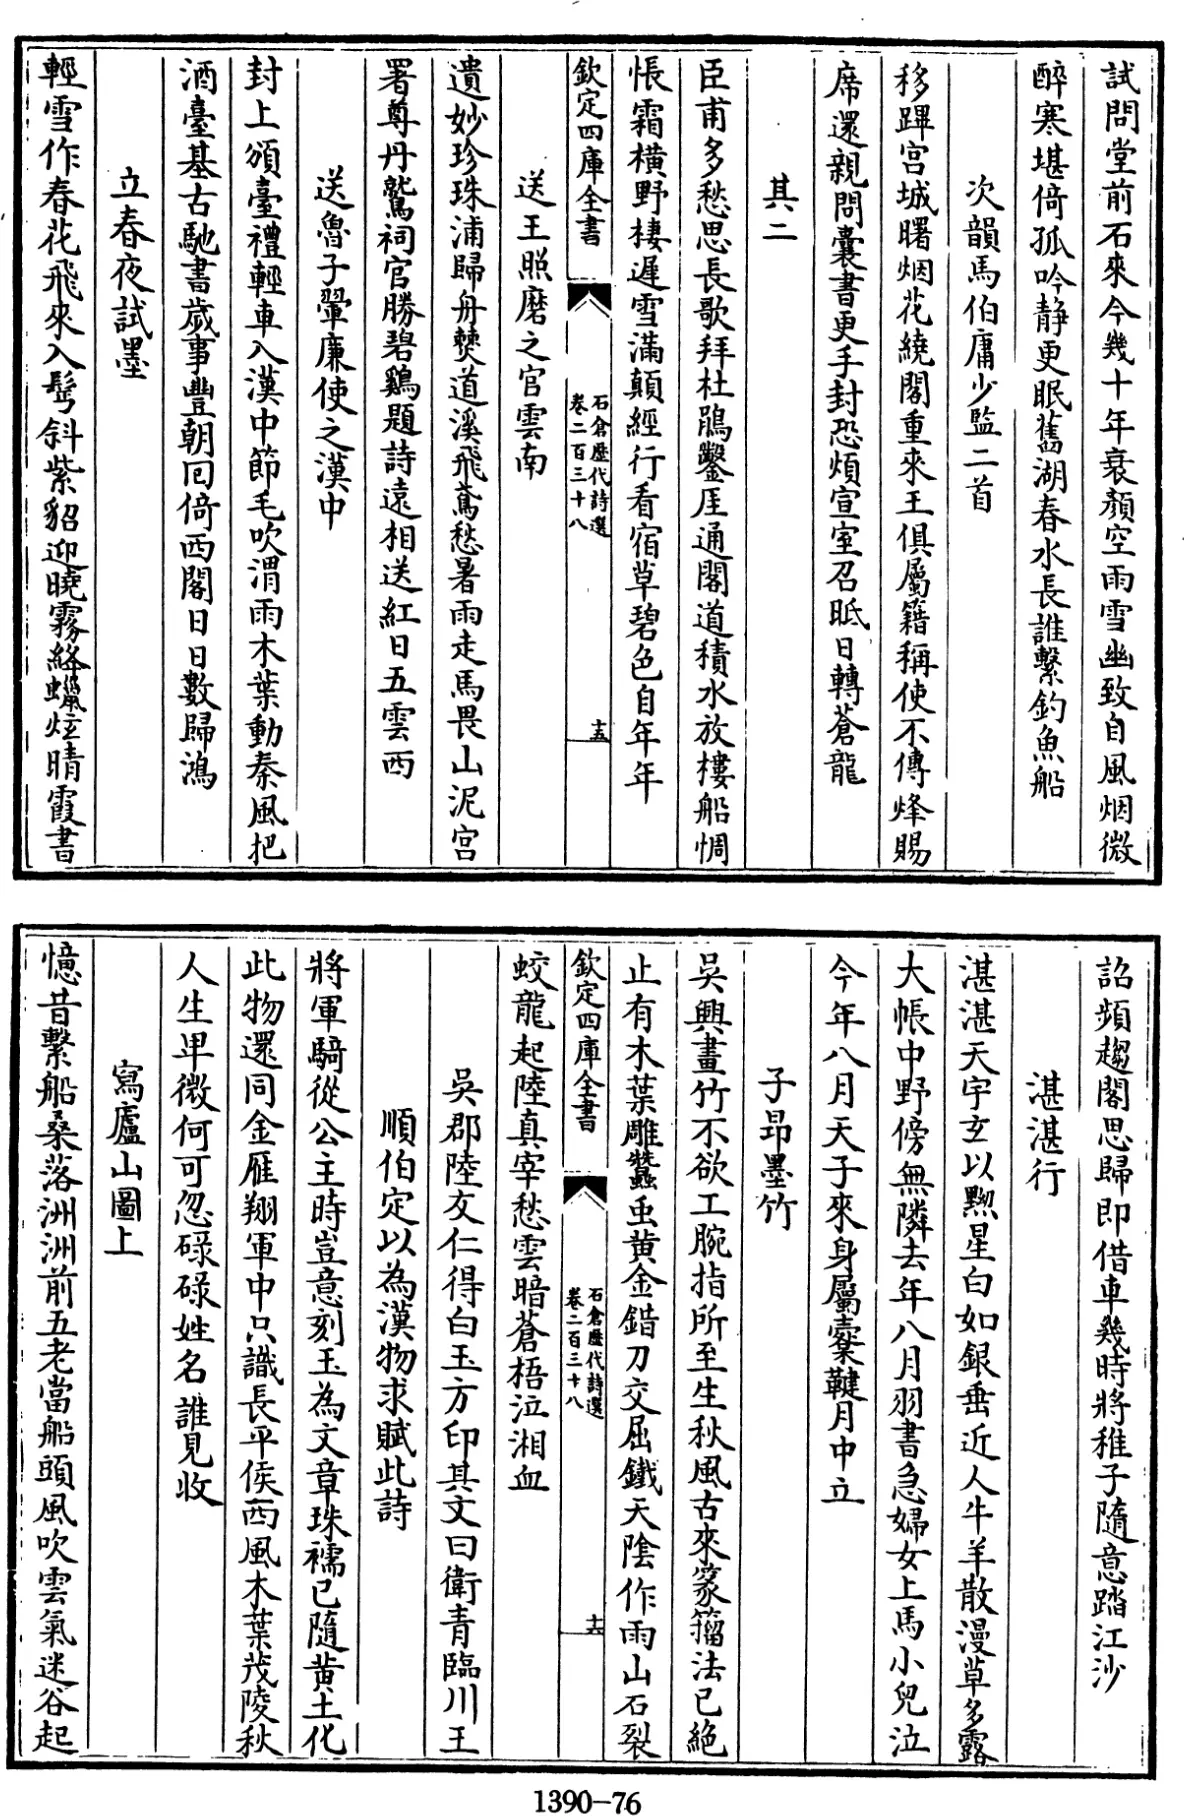 試問堂前石來今幾十年衰顏空雨雪幽致自風烟微
醉寒堪倚孤吟静更眠舊湖春水長誰繫釣魚船
次韻馬伯庸少監二首
移蹕宫城曙烟花繞閣重來王俱屬籍稱使不傳烽賜
席還親問囊書更手封恐煩宣室召眡日轉蒼龍
其二
臣甫多愁思長歌拜杜鵑鑿厓通閣道積水放樓船惆
悵霜横野棲遲雪滿顛經行看宿草碧色自年年
欽定四庫全書
石倉歷代詩選
卷二百三十八
十五
送王照磨之官雲南
遺妙珍珠浦歸舟僰道溪飛鳶愁暑雨走馬畏山泥宫
署尊丹鷲祠官勝碧鷄題詩遠相送紅日五雲西
送魯子翬廉使之漢中
封上頒臺禮輕車入漢中節毛吹渭雨木葉動秦風把
酒臺基古馳書歲事豐朝回倚西閣日日數歸鴻
立春夜試墨
輕雪作春花飛來入髩斜紫貂迎曉霧絳蠟炫晴霞書
詔頻趨閣思歸即借車幾時將稚子隨意踏江沙
湛湛行
湛湛天宇玄以黝星白如銀垂近人牛羊散漫草多露
大帳中野傍無隣去年八月羽書急婦女上馬小兒泣
今年八月天子來身屬櫜鞬月中立
子昂墨竹
吳興畫竹不欲工腕指所至生秋風古來篆籀法已絶
止有木葉雕蠶虫黄金錯刀交屈鐵天陰作雨山石裂
欽定四庫全書
石倉歷代詩選
卷二百三十八
十六
蛟龍起陸真宰愁雲暗蒼梧泣湘血
吳郡陸友仁得白玉方印其文曰衛青臨川王
順伯定以為漢物求賦此詩
將軍騎從公主時豈意刻玉為文章珠襦已隨黄土化
此物還同金雁翔軍中只識長平侯西風木葉茂陵秋
人生卑微何可忽碌碌姓名誰見收
寫廬山圖上
憶昔繫船桑落洲洲前五老當船頭風吹雲氣迷谷起
1390-76